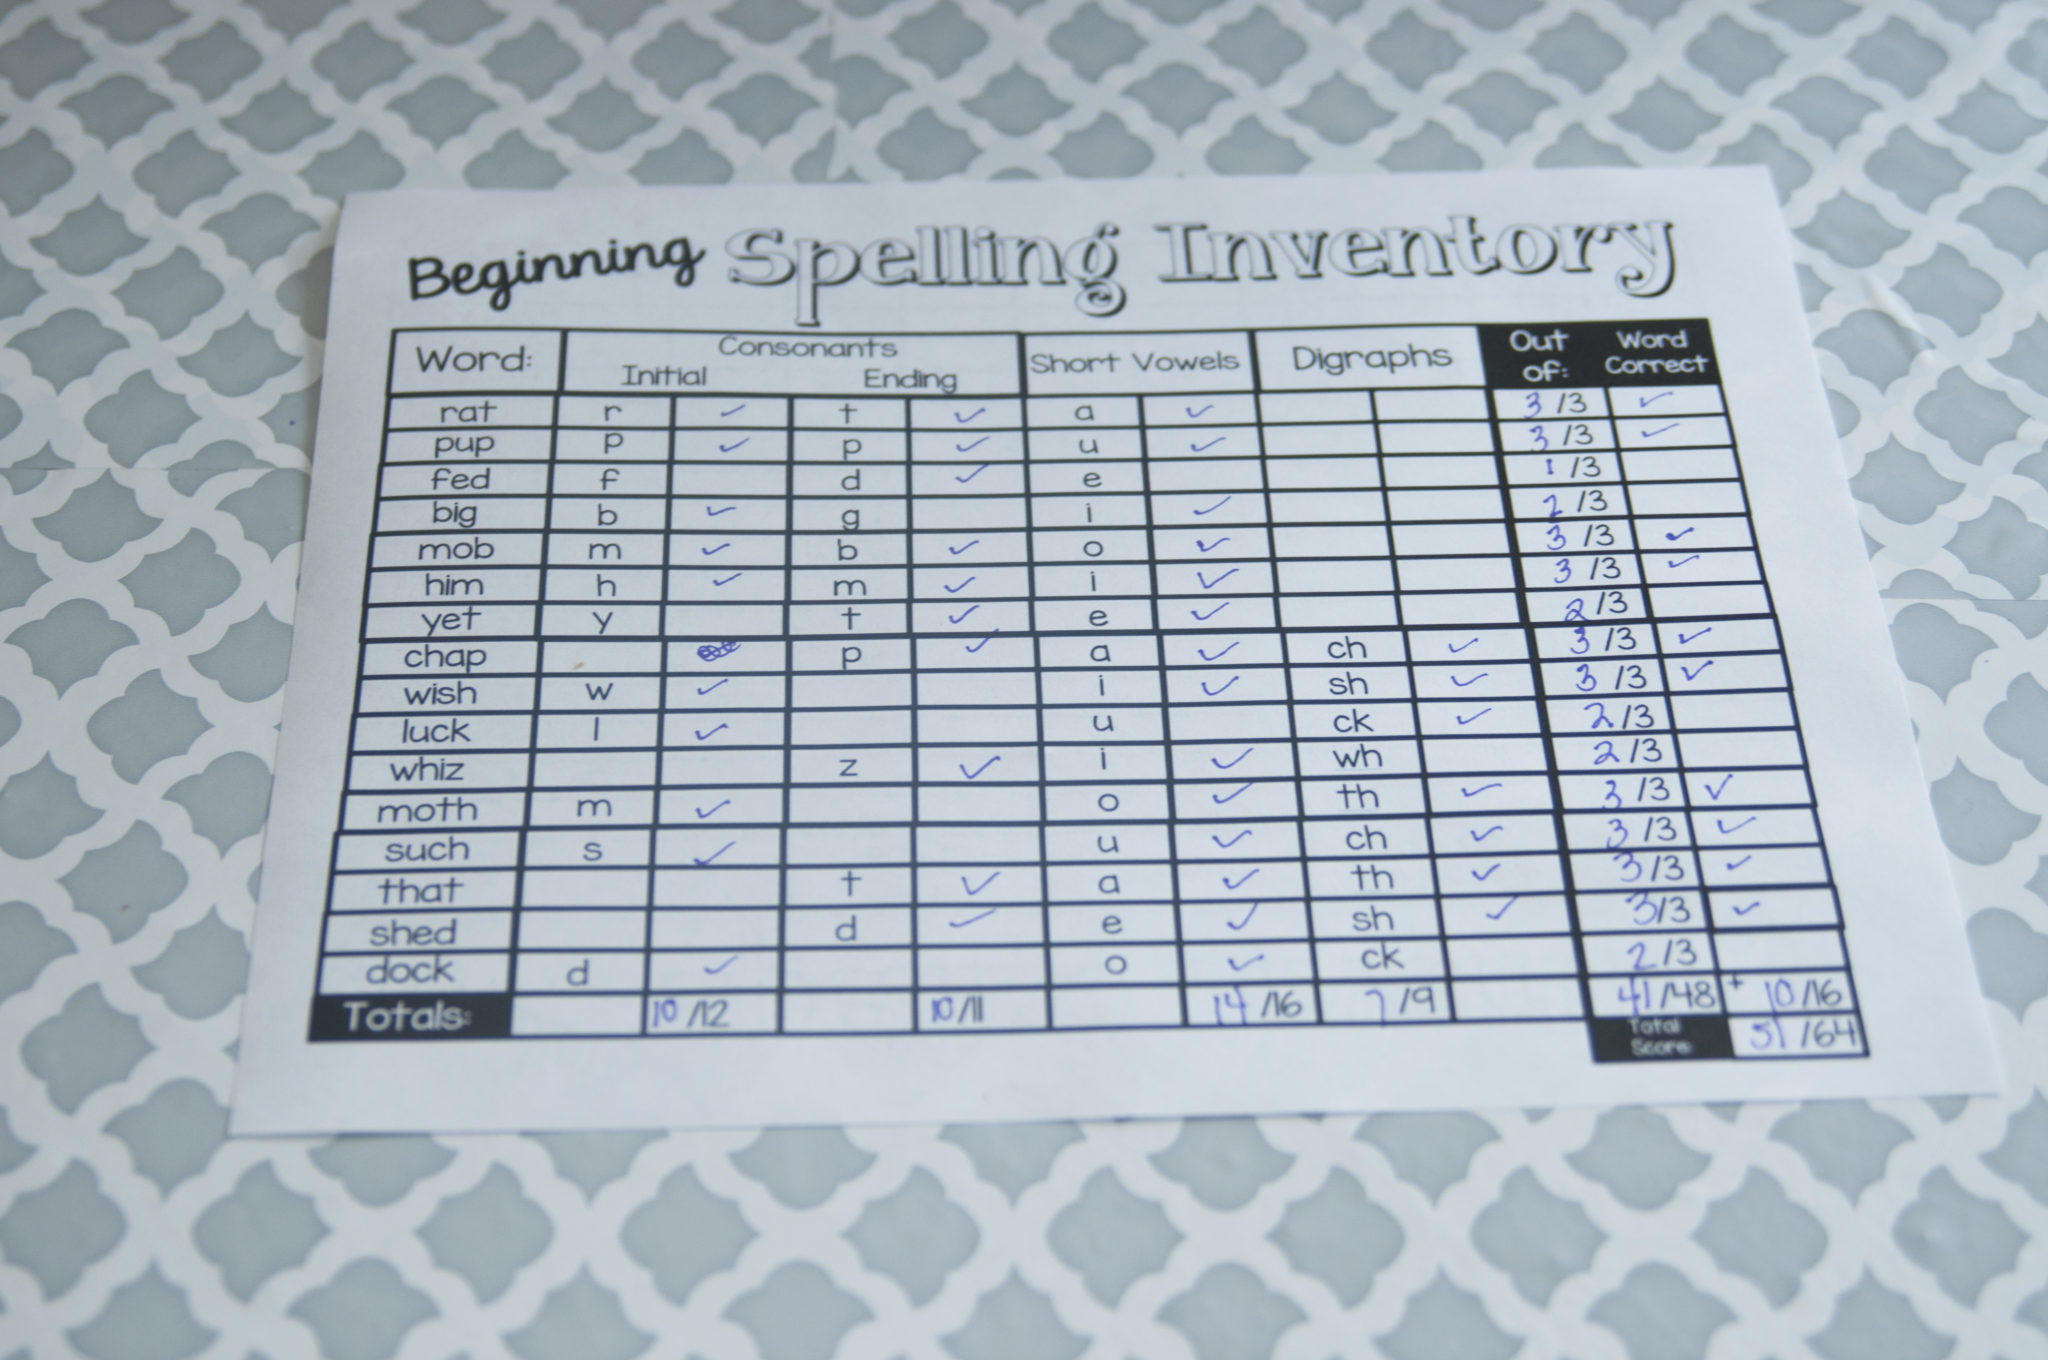 Beginning Spelling Inventory
Word: Consonants Short Vowels Digraphs Out of: Word Correct
Initial Ending
rat r ✓ t ✓ a ✓ 3 /3 ✓
pup p ✓ p ✓ u ✓ 3 /3 ✓
fed f d ✓ e 1 /3
big b ✓ g i ✓ 2 /3
mob m ✓ b ✓ o ✓ 3 /3 ✓
him h ✓ m ✓ i ✓ 3 /3 ✓
yet y t ✓ e ✓ 2 /3
chap p ✓ a ✓ ch ✓ 3 /3 ✓
wish w ✓ i ✓ sh ✓ 3 /3 ✓
luck l ✓ u ck ✓ 2 /3
whiz z ✓ i ✓ wh 2 /3
moth m ✓ o ✓ th ✓ 3 /3 ✓
such s ✓ u ✓ ch ✓ 3 /3 ✓
that t ✓ a ✓ th ✓ 3 /3 ✓
shed d ✓ e ✓ sh ✓ 3 /3 ✓
dock d ✓ o ✓ ck 2 /3
Totals: 10 /12 10 /11 14 /16 7 /9 41 /48 + 10 /16
Total Score: 51 /64